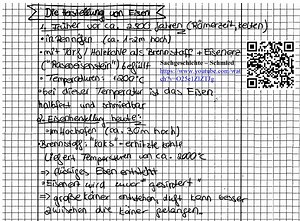 Die Herstellung von Eisen
1. Früher vor ca. 2500 Jahren (Römerzeit, Kelten)
• in Rennöfen (ca. 1-2m hoch)
• mit Torf / Holzkohle als Brennstoff + Eisenerz
("Raseneisenstein") befüllt
Sachgeschichte – Schmied
https://www.youtube.com/wat
• Temperaturen: 1200°C
• bei dieser Temperatur ist das Eisen
halbfest und schmiedbar
2. Eisenherstellung heute:
• im Hochofen (ca. 30m hoch)
• Brennstoff: "Koks" - erhitzte Kohle
liefert Temperaturen von ca. 2000°C
⇒ flüssiges Eisen entsteht
• Eisenerz wird zuvor "gesintert"
⇒ große Körner entstehen, Luft kann besser
zwischen die Körner gelangen.